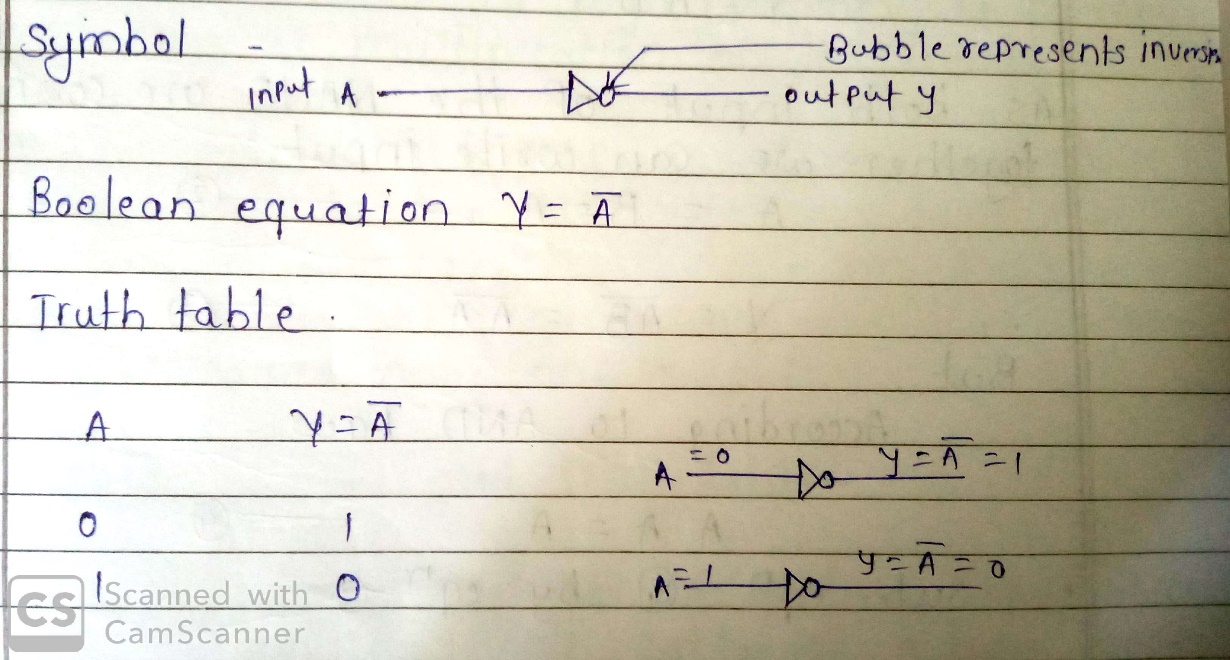 Symbol -
Bubble represents inversn
input A
output y
Boolean equation Y = A̅
Truth table .
A Y = A̅
A = 0 y = A̅ = 1
0 1
A = 1 y = A̅ = 0
1 0
CS Scanned with
CamScanner